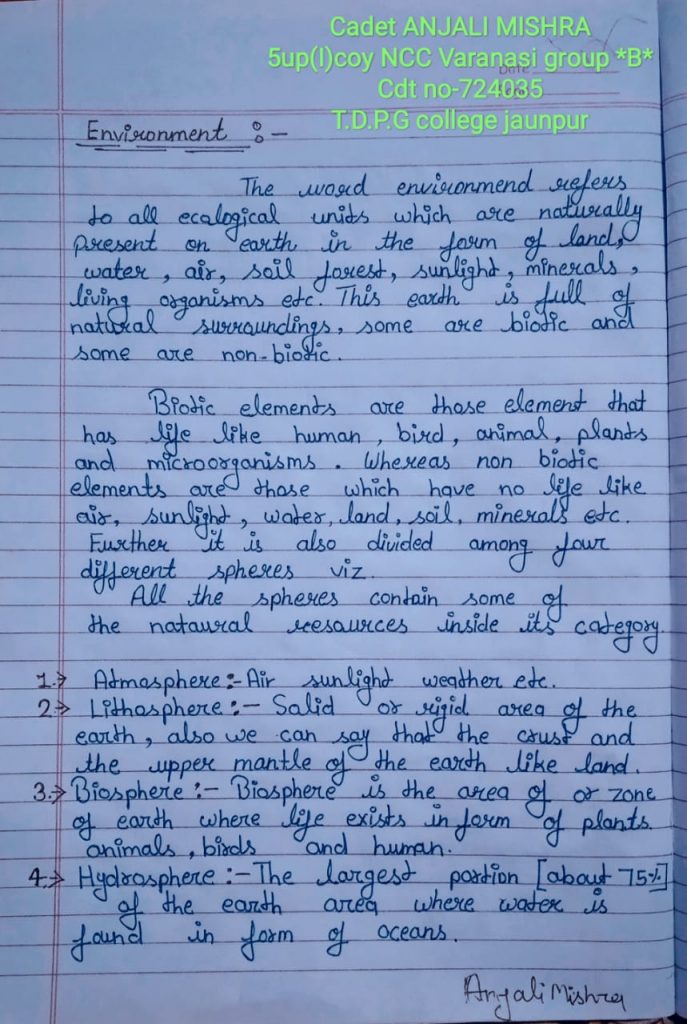 Cadet ANJALI MISHRA
5up(I)coy NCC Varanasi group *B*
Date
Cdt no-724035
T.D.P.G college jaunpur
Environment :-
The word environmend refers
to all ecalogical units which are naturally
present on earth in the form of land,
water, air, soil forest, sunlight, minerals,
living organisms etc. This earth is full of
natural surroundings, some are biotic and
some are non-biotic.
Biotic elements are those element that
has life like human, bird, animal, plants
and microorganisms. Whereas non biotic
elements are those which have no life like
air, sunlight, water, land, soil, minerals etc.
Further it is also divided among four
different spheres viz.
All the spheres contain some of
the nataural resources inside its category.
1.→ Atmasphere:- Air sunlight weather etc.
2→ Lithasphere:- Salid or rigid area of the
earth, also we can say that the crust and
the upper mantle of the earth like land.
3.→ Biosphere:- Biosphere is the area of or zone
of earth where life exists in form of plants.
animals, birds and human.
4.→ Hydrosphere:- The largest portion [about 75%]
of the earth area where water is
found in form of oceans.
Anjali Mishra